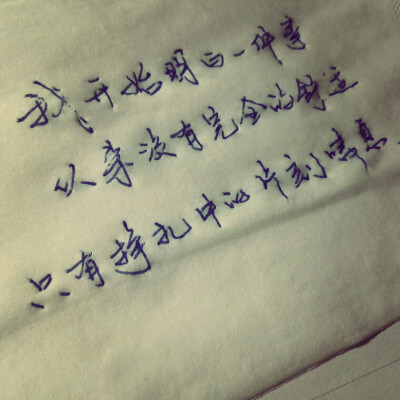 我开始明白一件事
从来没有完全的舒适
只有挣扎中的片刻喘息